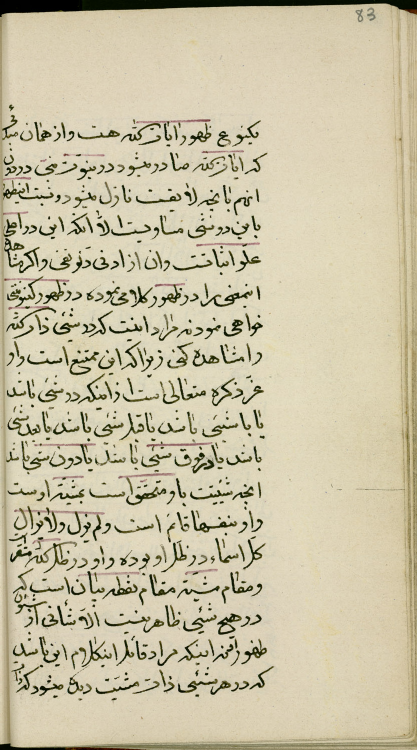 83
یکنوع ظهور ایات الله هست و از همان
که ایات الله صادر میشود در نبوت
انهم بآنچه لایق است نازل میشود و نیست
باین دو شیئی مساویست الا آنکه این در اعلی
علو اثباتست وان از ادنی دنو نفی و اگر
در ظهور کلامی نموده در ظهور
خواهی نمود نه مراد انست که در شیئی ذات الله
را مشاهده کنی زیرا که این ممتنع است و او
عز ذکره متعالی است از اینکه در شیئی باشد
یا با شیئی باشد یا قبل شیئی باشد یا بعد شیئی
باشد یا در فوق شیئی باشد یا دون شیئی باشد
انچه شیئیت باو متحقق است مشیت اوست
و او بنفسها قائم است و لم یزل و لا یزال
کل اسماء در ظل او بوده و او در ظل الله
و مقام مشیت مقام نقطه بیان است که
در هیچ شیئی ظاهر نیست الا شأنی از
ظهور انکه مراد قائل اینکلام این باشد
که در هر شیئی ذات مشیت دیده میشود که